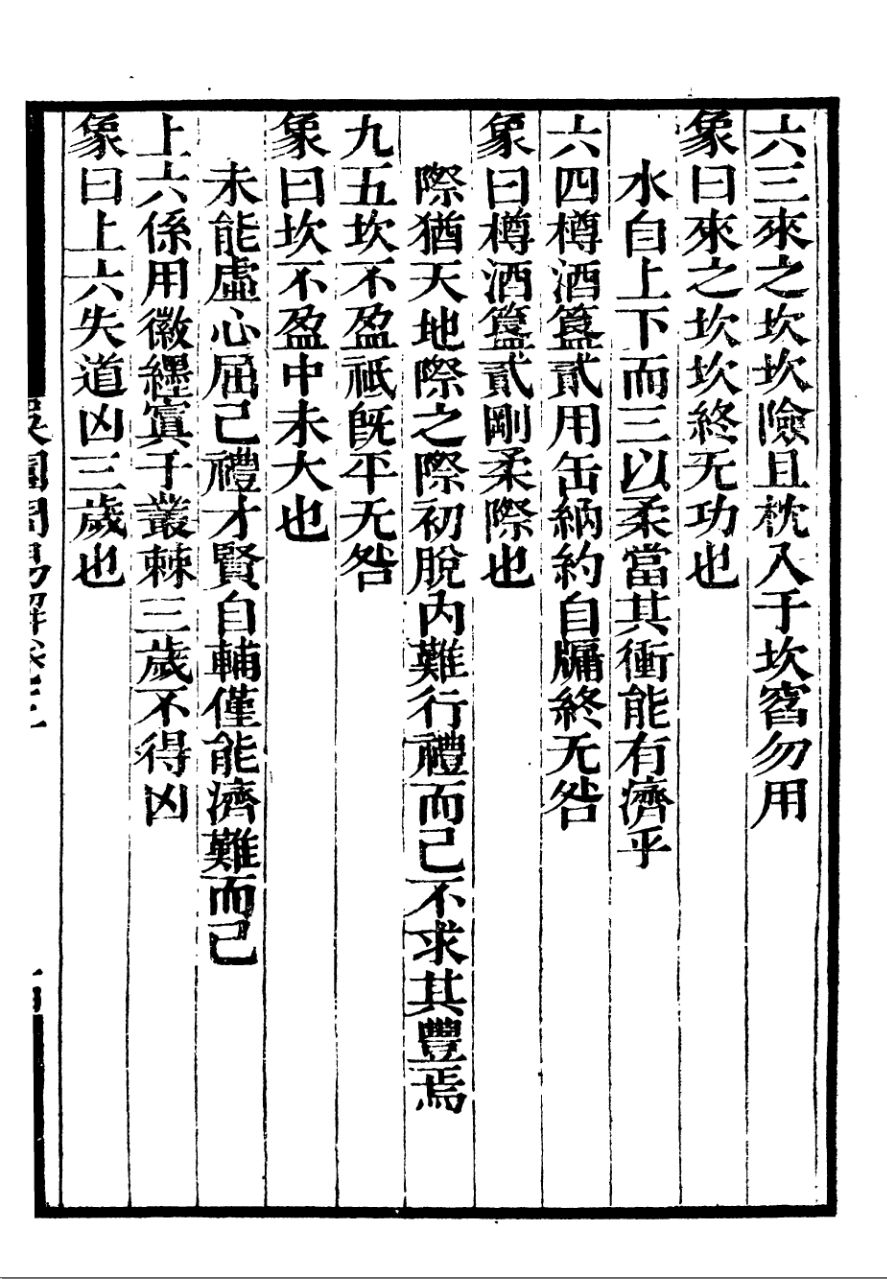 六三來之坎坎險且枕入于坎窞勿用
象曰來之坎坎終无功也
水自上下而三以柔當其衝能有濟乎
六四樽酒簋貳用缶納約自牖終无咎
象曰樽酒簋貳剛柔際也
際猶天地際之際初脫內難行禮而已不求其豐焉
九五坎不盈祗旣平无咎
象曰坎不盈中未大也
未能虛心屈己禮才賢自輔僅能濟難而已
上六係用徽纆寘于叢棘三歲不得凶
象曰上六失道凶三歲也